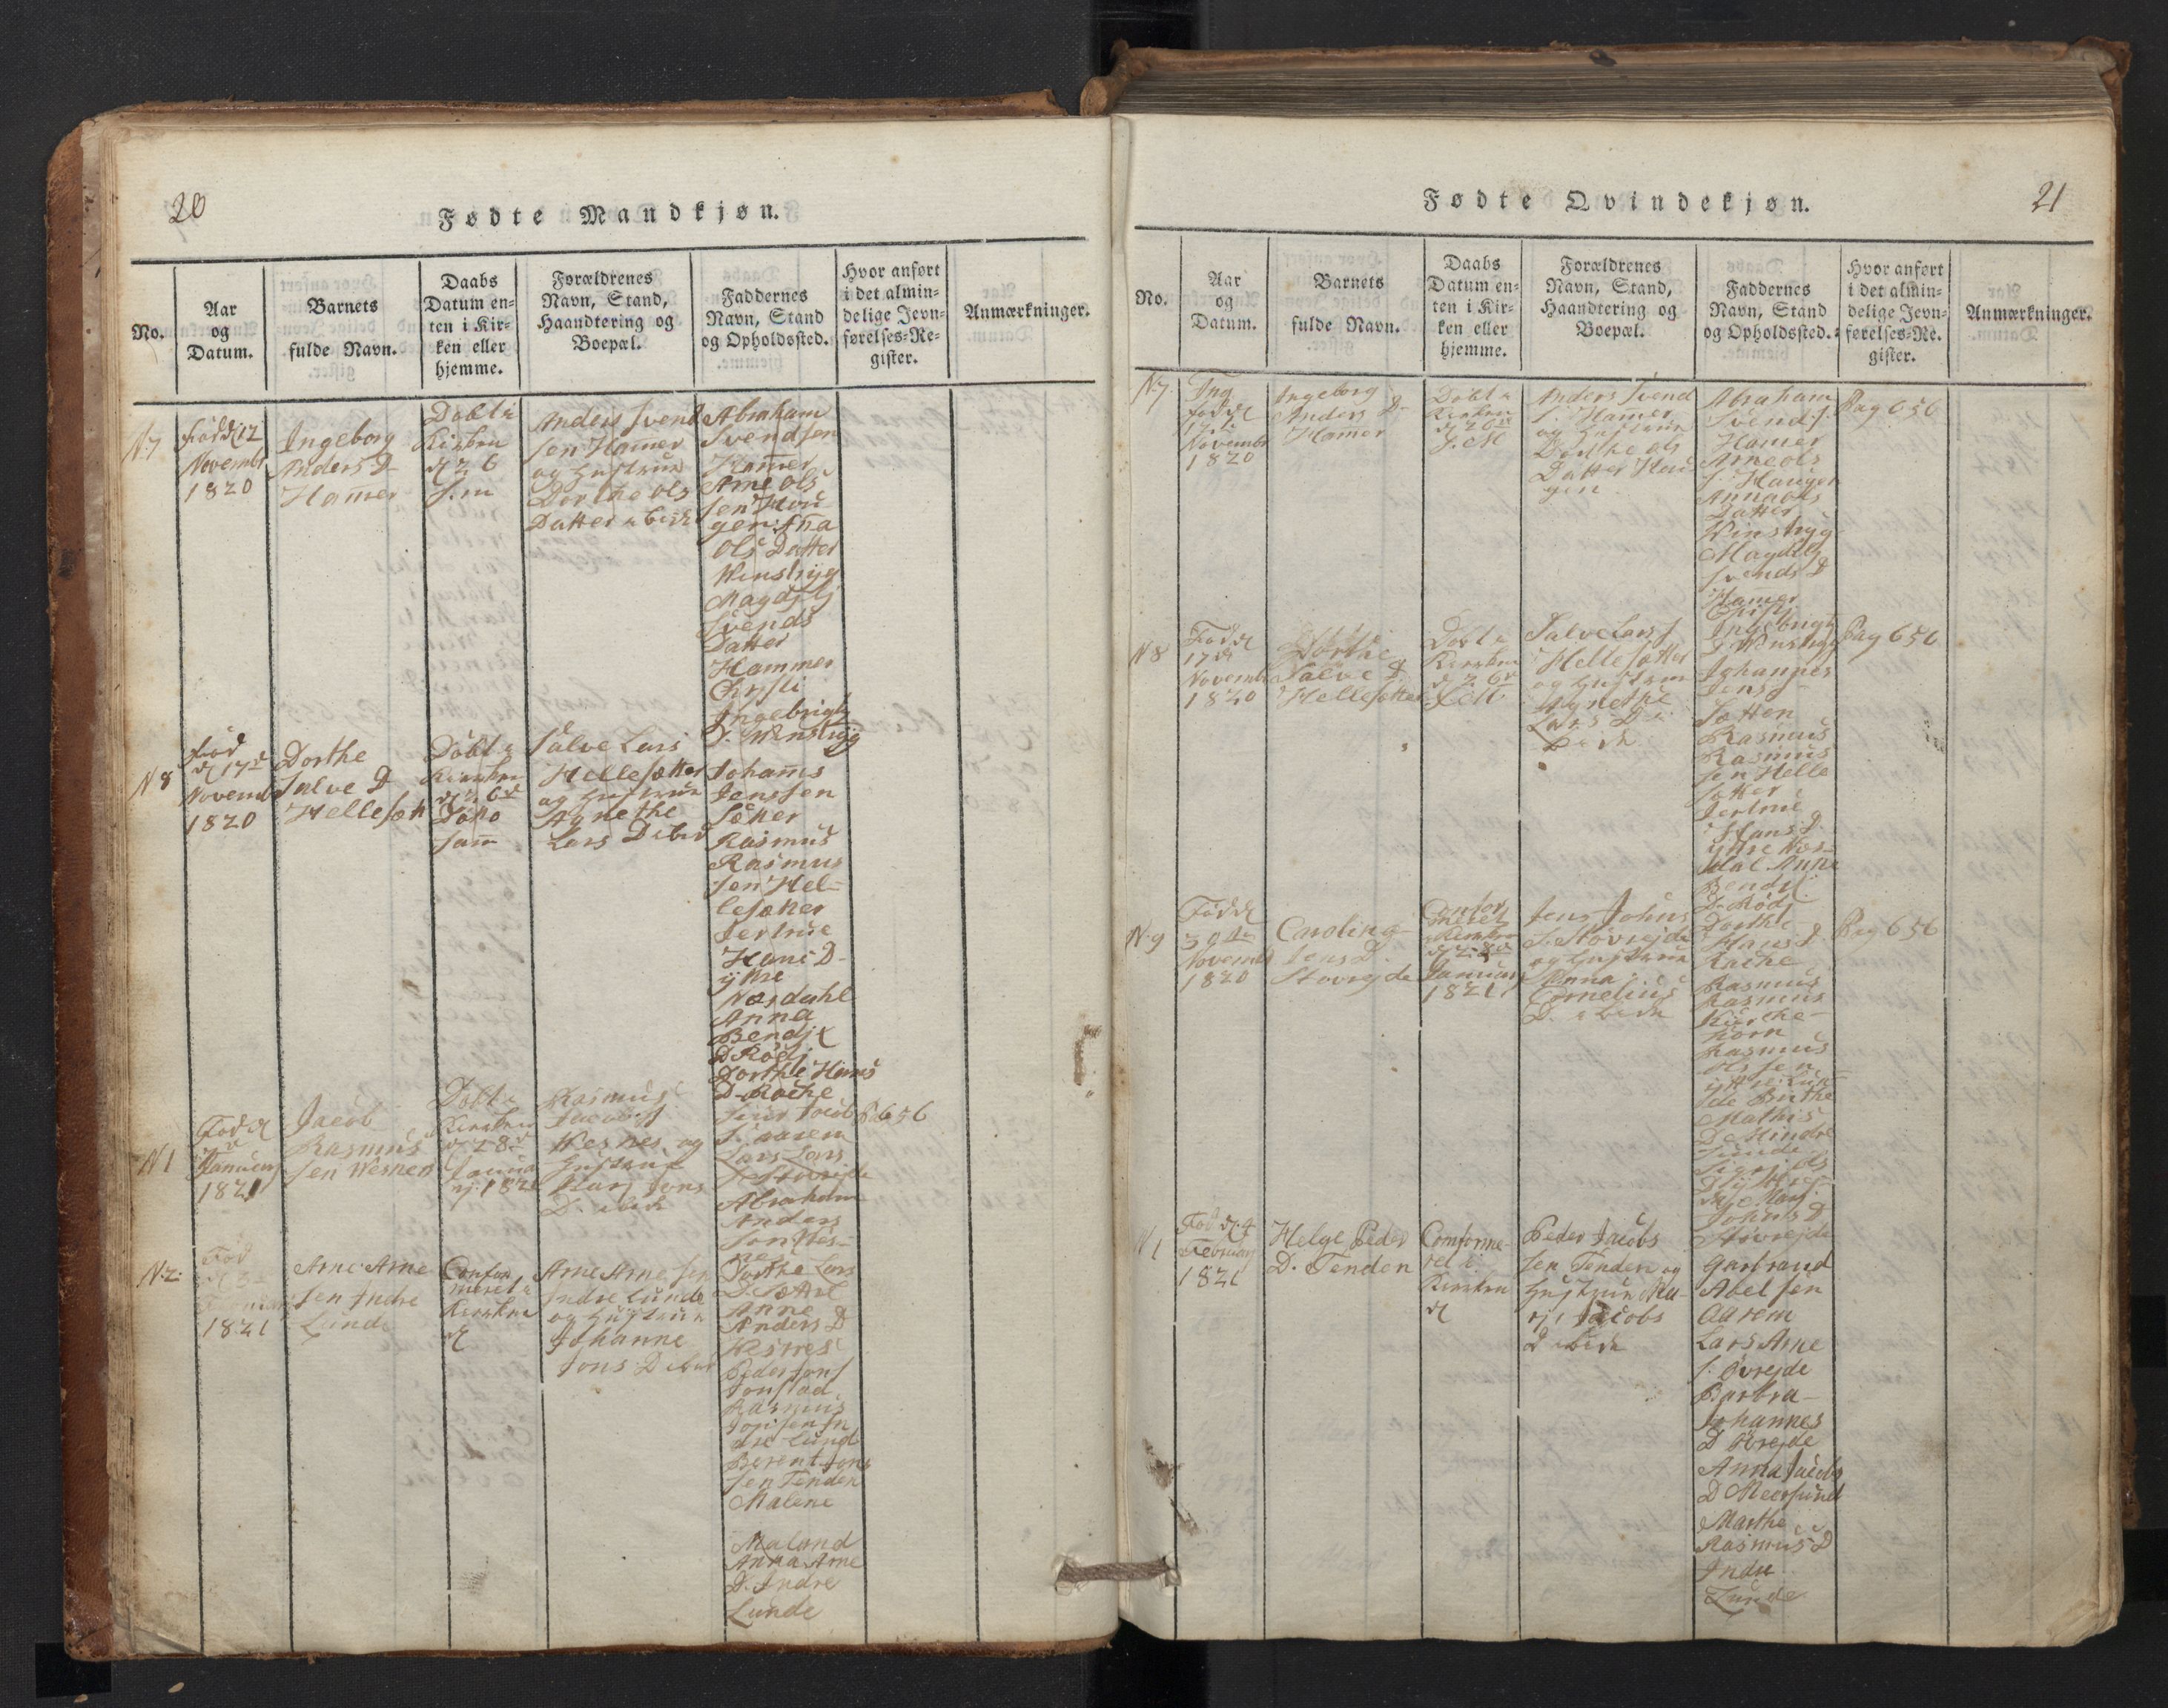 20
Fødte Mandkjøn.
No.
Aar
og
Datum.
Barnets
fulde Navn.
Daabs
Datum en-
ten i Kir-
ken eller
hjemme.
Forældrenes
Navn, Stand,
Haandtering og
Boepæl.
Faddernes
Navn, Stand
og Opholdssted.
Hvor anført
i det almin-
delige Jevn-
førelses-Re-
gister.
Anmærkninger.
N.7
Född 12
Novembr
1820
Ingeborg
Anders D
Hamer
Döbt i
Kirken
d 26
Anders Svend
sen Hamer
og Hustrue
Dorthe Ols
Datter ibid
Abraham
Svendsen
Hamer
Arne Ols
sen Hou
gen Ana
Ols Datter
Winslyg
Magdl
Svends
Datter
Hammer
Chrysti
Ingebrigts
D. Winslyg
N 8
Föd
d 17de
Novembr
1820
Dorthe
Salve D
Hellesæt
Döbt i
Kirken
d 26de
Salve Lars
Hellesætter
og Hustrue
Agnethe
Lars D ibid
Johanns
Jenssen
Sæter
Rasmus
Rasmus
sen Hel-
lesæter
Jertrue
Hans D-
ytre
Næsdahl
Anna
Bendix
D Rödj
Dorthe Hans
D-Rache
N 1
Föd d
Januarj
1821
Jacob
Rasmus
sen Wesnes
Döbt i
Kirken
d 28de
Janua
rj 1821
Rasmus
Jacobs
Wesnes og
Hustrue
Marj Jons
D. ibid
Jacob
S. Aarem
Lars Lars
S Stavrejde
Abraham
Anders
Son Wes-
nes
Dorthe Lars
D. Sætre
Anne
Anders D
Wesnes
P 656
N.2.
Föd
d 3de
1821
Arne Arne
sen Indre
Lunde
Confor
meret i
Kirken
d
Arne Arne sen
Indre Lunde
og Hustrue
Johanne
Jons D ibid
Peder Jons
Jonstad
Rasmus
Jonsen In
dre Lund
Berent Jons
sen Tenden
Malene
Maland
Anna Arne
D. Indre
Lunde
21
Fødte Qvindekjøn.
No.
Aar
og
Datum.
Barnets
fulde Navn.
Daabs
Datum en-
ten i Kir-
ken eller
hjemme.
Forældrenes
Navn, Stand,
Haandtering og
Boepæl.
Faddernes
Navn, Stand
og Opholdssted.
Hvor anført
i det almin-
delige Jevn-
førelses-Re-
gister.
Anmærkninger.
N.7.
Ing
född
12te
Novembr
1820
Ingeborg
Anders D-
Hamer
Döbt i
Kirken
d 26de
Anders Svend
S. Hamer
og Hustrue
Dorthe Ols
Datter Hau
gen
Abraham
Svend S.
Hamer
Arne Ols
S. Haugen
Anna Ols
Datter
Winslyg
Magdl
Svends D
Hamer
Christi
Ingebrigt
D Winslyg
Pag 656
N 8
Föd d
17de
Novembr
1820
Dorthe
Salve D
Hellesætter
Döbt i
Kirken
d 26de
Salve Lars S
Hellesætter
og Hustrue
Agnethe
Lars D i
bid
Johannes
Jens S
Sætten
Rasmus
Rasmus
sen Helle
sætter
Jertrue
Hans D.
ytre Næs-
dal Anne
Bendix
D. Rödj
Dorthe
Hans D.
Rache
Pag 656
N 9
Föd d
30te
Novembr
1820
Carolina
Jens D.
Stavrejde
Confor
meret
i Kirken
d 28de
Januarj
1821
Jens Johns
S. Stovrejde
og Hustrue
Anna
Cornelius
D. ibid
Rasmus
Rasmus
Kirche-
horn
Rasmus
Olssen
Mathis
D Mindre
Sunde
Johns D
Stovrejde
Pag 656
N 1
Föd d. 4
Februarj
1821
Helge Peder
D. Tenden
Comforme
ret i
Kirken
d
Peder Jacobs
sen Tenden og
Hustrue Ma-
rj: Jacobs
D ibid
Gartrand
Abel sen
Aarem
Lars Arne
S. Övrejde
Barbra
Johannes
D Övrejde
Anna Jacobs
D Meersund
Marthe
Rasmus D
Indre
Lunde